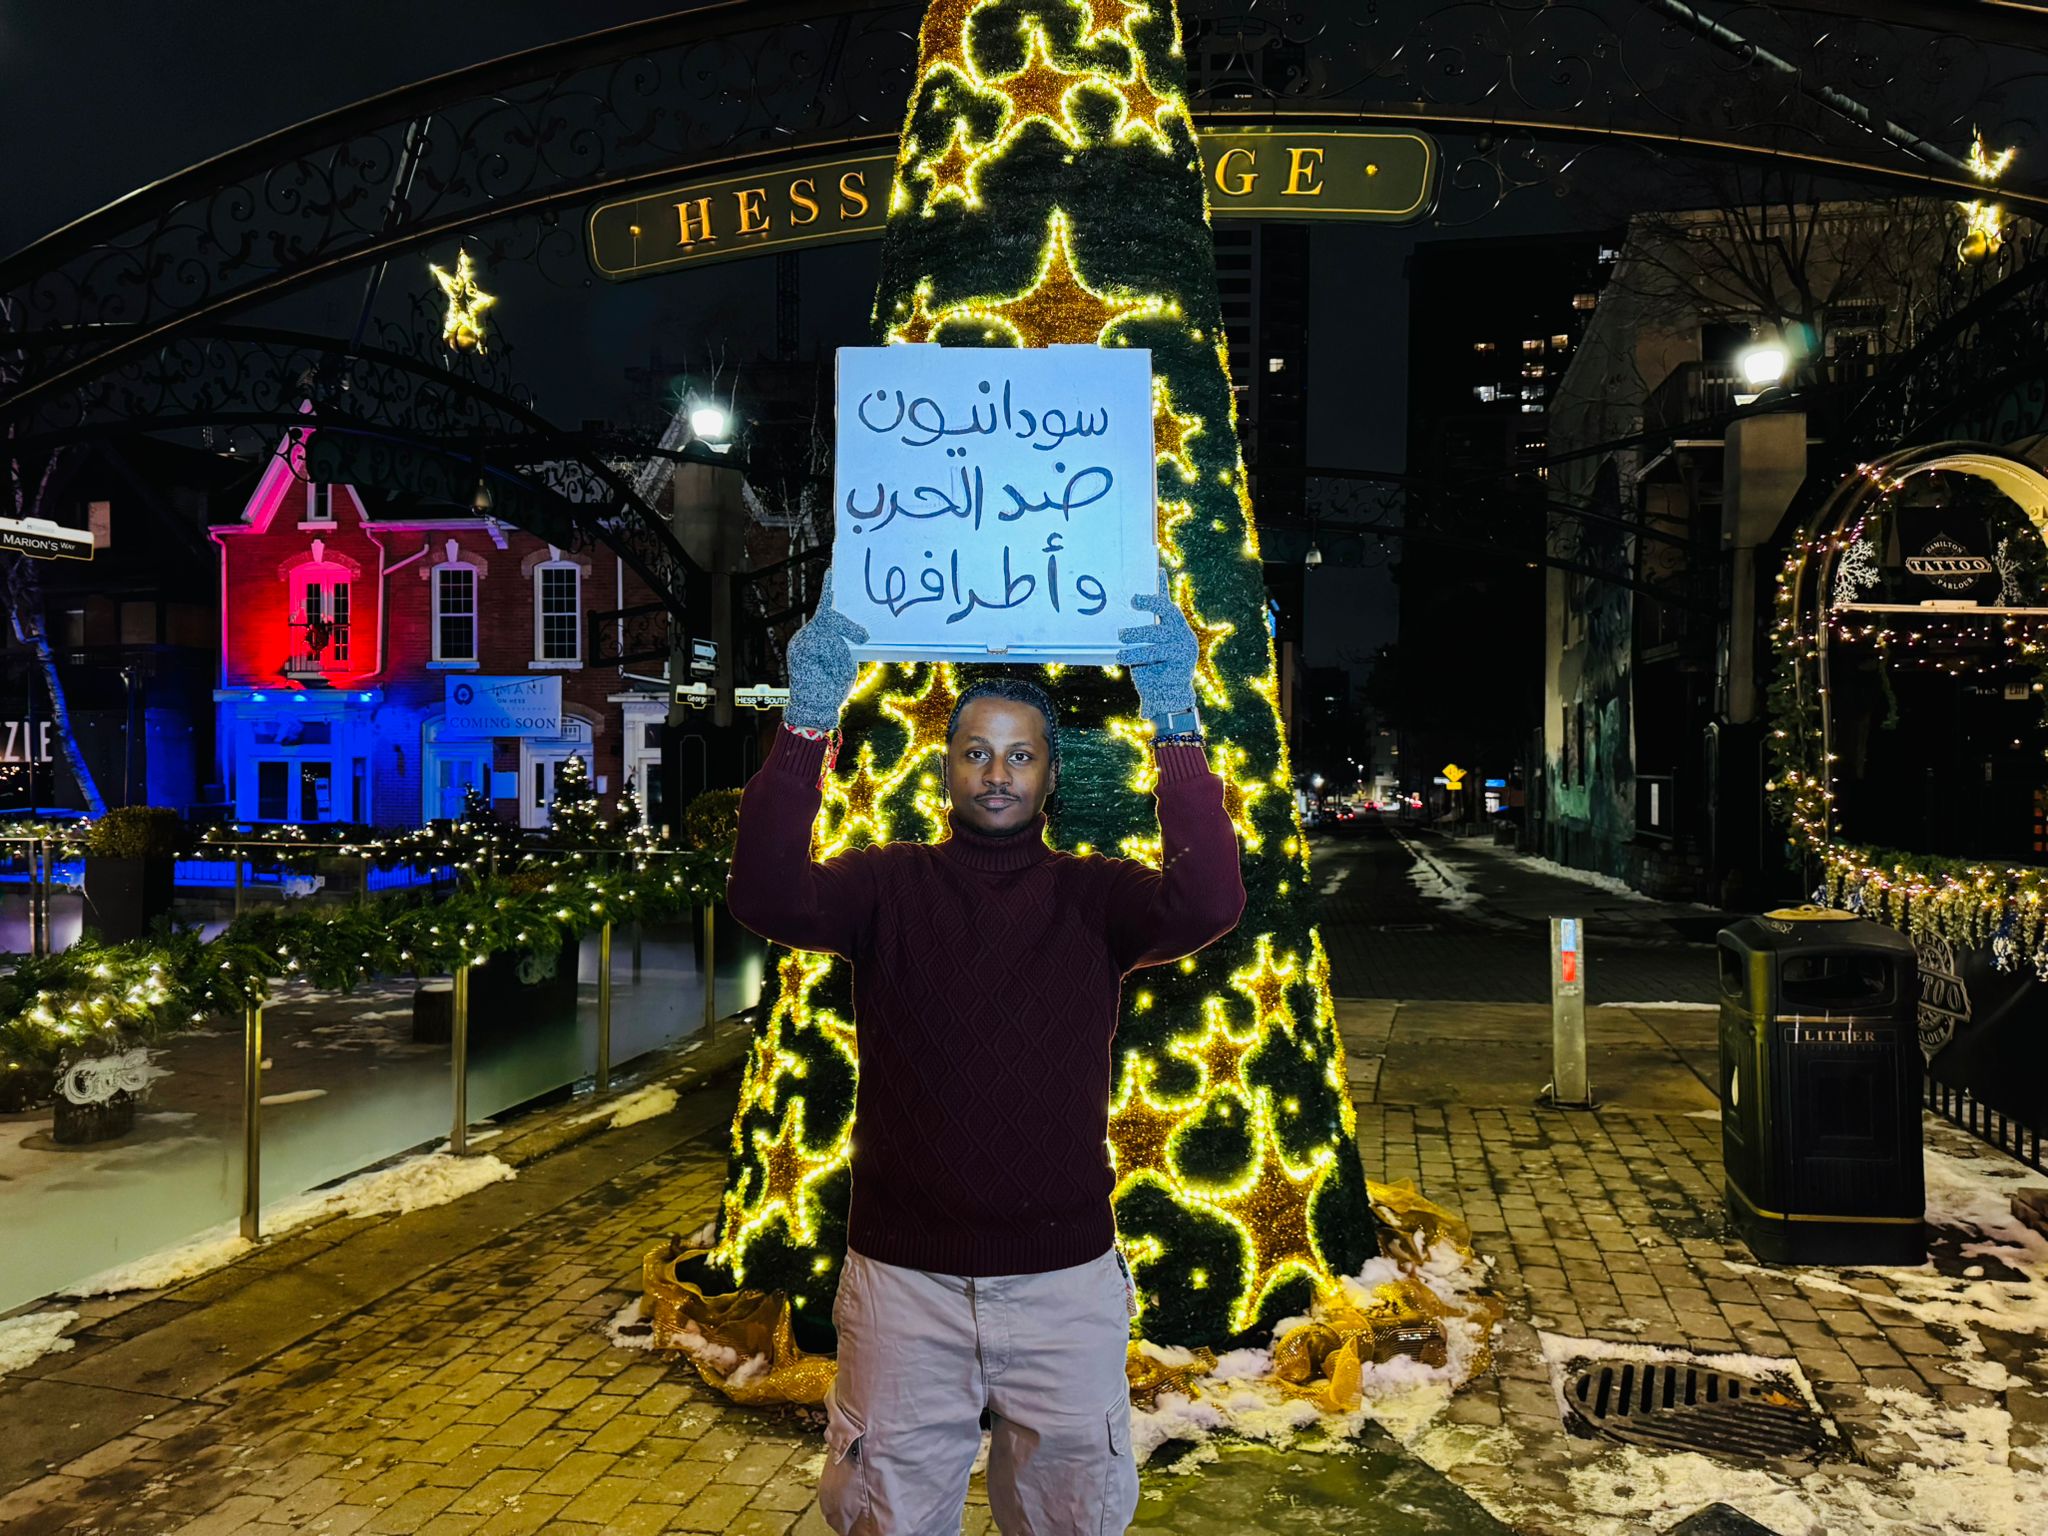 HESS
GE
سودانيون
ضد الحرب
وأطرافها
MARION'S WAY
LIMANI
ON HESS
COMING SOON
George
HESS ST SOUTH
ZZLE
HAMILTON
TATTOO
PARLOUR
EXIT
LITTER